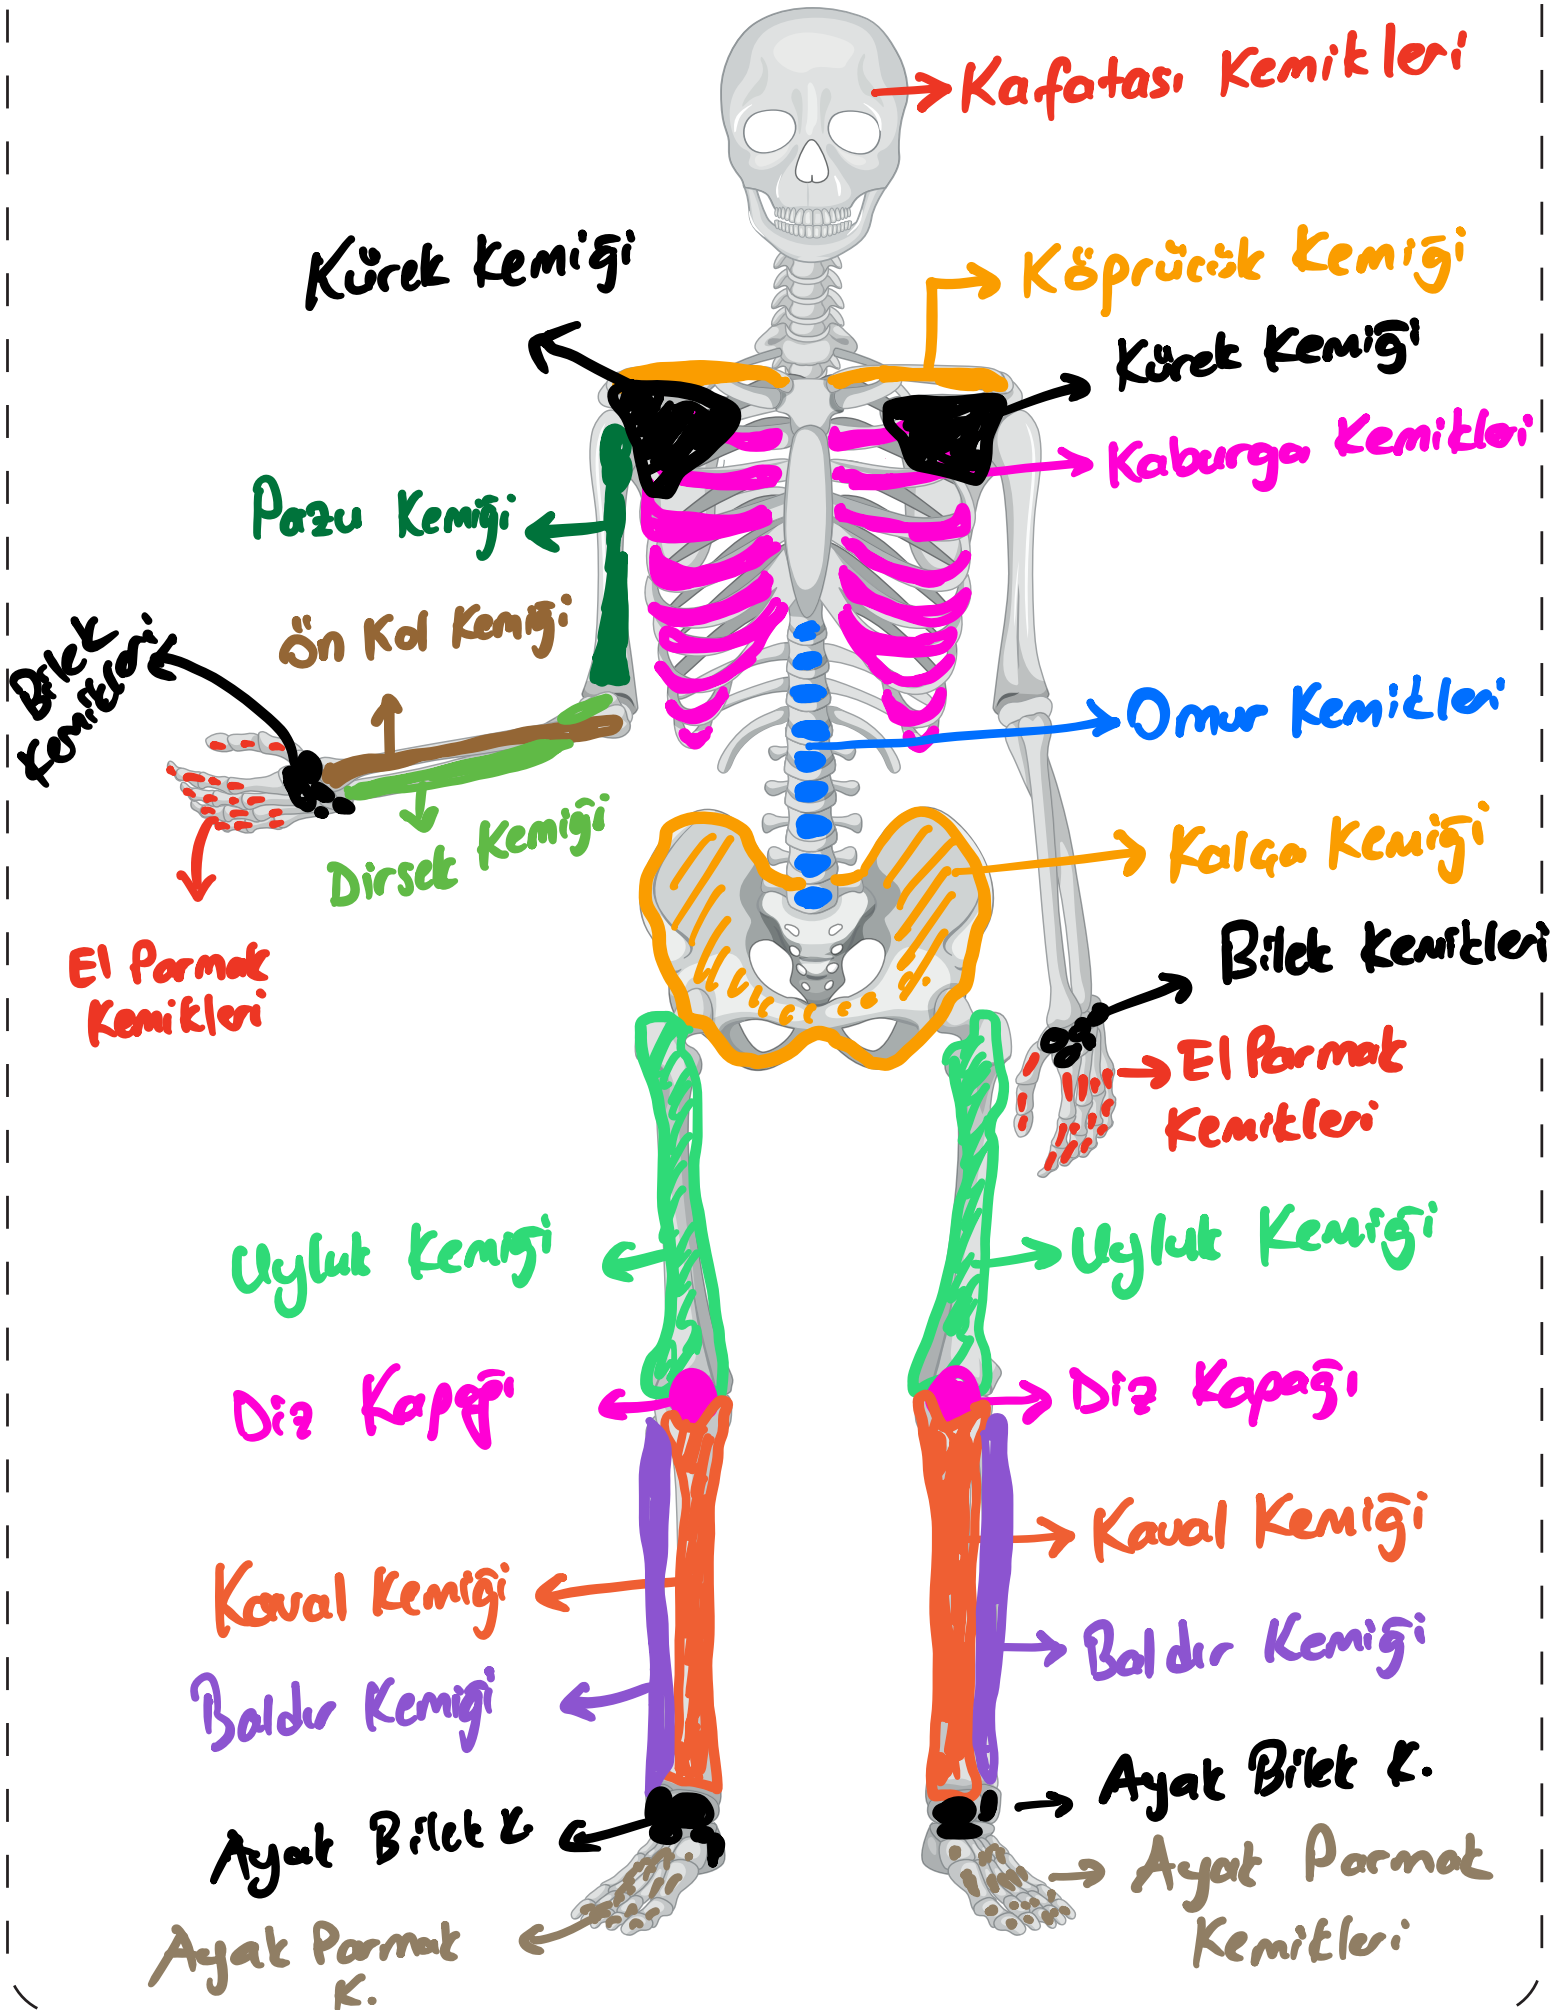 Kafatası Kemikleri
Kürek Kemiği
Köprücük Kemiği
Kürek Kemiği
Kaburga Kemikleri
Pazu Kemiği
Ön Kol Kemiği
Bilek
Kemikleri
Omur Kemikleri
Dirsek Kemiği
Kalça Kemiği
El Parmak
Kemikleri
Bilek Kemikleri
El Parmak
Kemikleri
Uyluk Kemiği
Uyluk Kemiği
Diz Kapağı
Diz Kapağı
Kaval Kemiği
Kaval Kemiği
Baldır Kemiği
Baldır Kemiği
Ayak Bilek K.
Ayak Bilek K
Ayak Parmak
Kemikleri
Ayak Parmak
K.